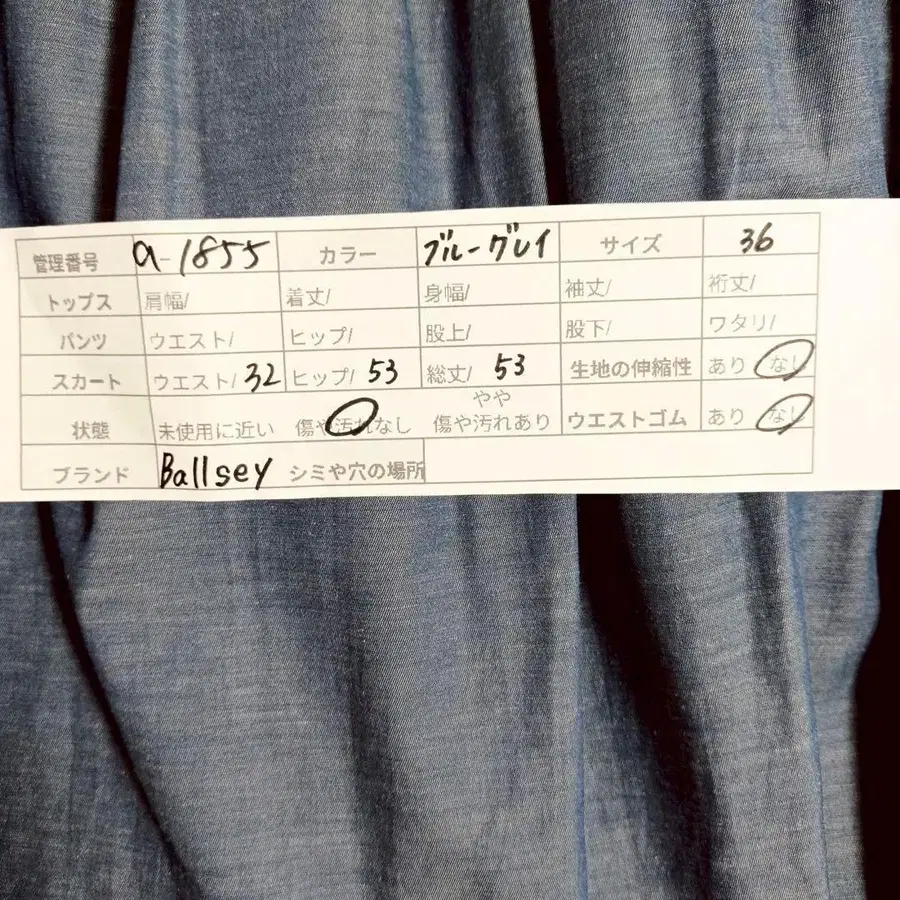 管理番号 a-1855 カラー ブルーグレイ サイズ 36
トップス 肩幅/ 着丈/ 身幅/ 袖丈/ 裄丈/
パンツ ウエスト/ ヒップ/ 股上/ 股下/ ワタリ/
スカート ウエスト/ 32 ヒップ/ 53 総丈/ 53 生地の伸縮性 あり なし
状態 未使用に近い 傷や汚れなし やや傷や汚れあり ウエストゴム あり なし
ブランド Ballsey シミや穴の場所